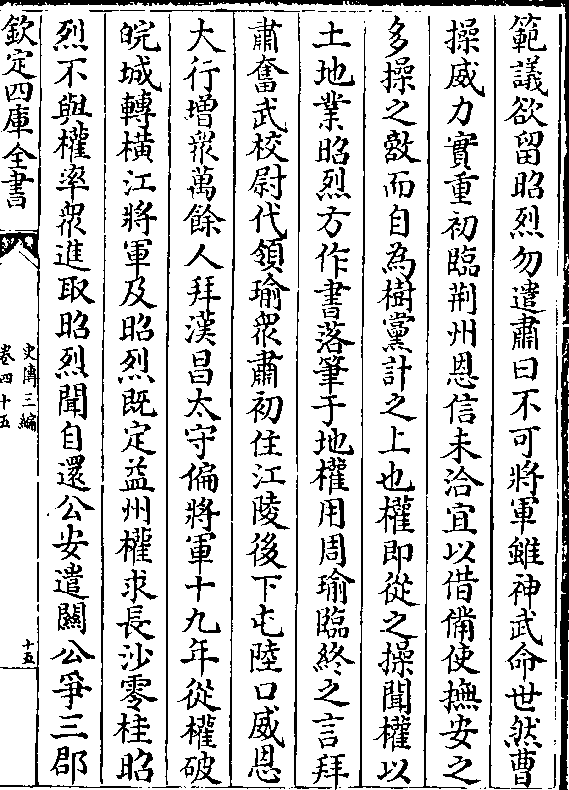 範議欲留昭烈勿遣肅曰不可將軍雖神武命世然曹
操威力實重初臨荆州恩信未洽宜以借備使撫安之
多操之敵而自為樹黨計之上也權即從之操聞權以
土地業昭烈方作書落筆于地權用周瑜臨終之言拜
肅奮武校尉代領瑜衆肅初住江陵後下屯陸口威恩
大行增衆萬餘人拜漢昌太守偏將軍十九年從權破
皖城轉橫江將軍及昭烈既定益州權求長沙零桂昭
烈不與權率衆進取昭烈聞自還公安遣關公爭三郡
欽定四庫全書
史傳三編
卷四十五
十五